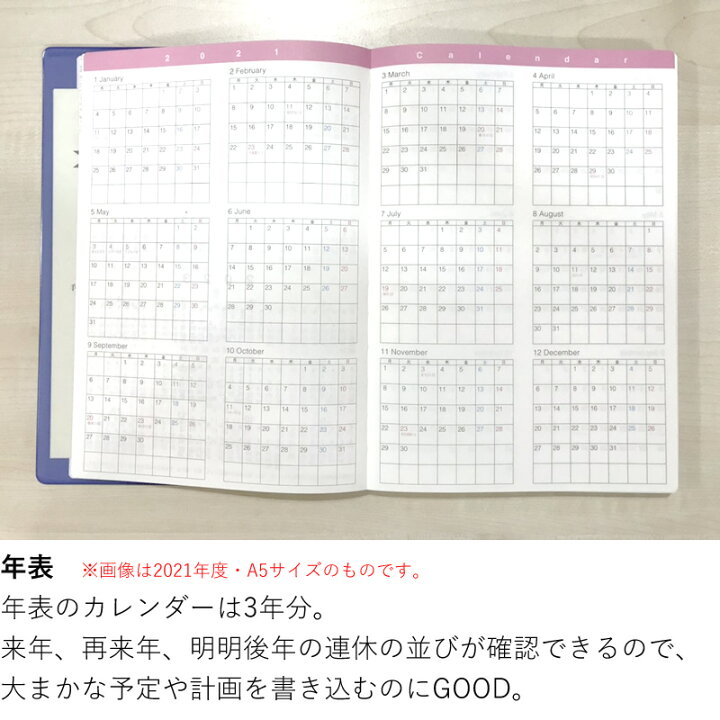 2021
Calendar
1 January
月 火 水 木 金 土 日
1 2 3
4 5 6 7 8 9 10
11 12 13 14 15 16 17
18 19 20 21 22 23 24
25 26 27 28 29 30 31
2 February
月 火 水 木 金 土 日
1 2 3 4 5 6 7
8 9 10 11 12 13 14
15 16 17 18 19 20 21
22 23 24 25 26 27 28
3 March
月 火 水 木 金 土 日
1 2 3 4 5 6 7
8 9 10 11 12 13 14
15 16 17 18 19 20 21
22 23 24 25 26 27 28
29 30 31
4 April
月 火 水 木 金 土 日
1 2 3 4
5 6 7 8 9 10 11
12 13 14 15 16 17 18
19 20 21 22 23 24 25
26 27 28 29 30
5 May
月 火 水 木 金 土 日
1 2
3 4 5 6 7 8 9
10 11 12 13 14 15 16
17 18 19 20 21 22 23
24 25 26 27 28 29 30
31
6 June
月 火 水 木 金 土 日
1 2 3 4 5 6
7 8 9 10 11 12 13
14 15 16 17 18 19 20
21 22 23 24 25 26 27
28 29 30
7 July
月 火 水 木 金 土 日
1 2 3 4
5 6 7 8 9 10 11
12 13 14 15 16 17 18
19 20 21 22 23 24 25
26 27 28 29 30 31
8 August
月 火 水 木 金 土 日
1
2 3 4 5 6 7 8
9 10 11 12 13 14 15
16 17 18 19 20 21 22
23 24 25 26 27 28 29
30 31
9 September
月 火 水 木 金 土 日
1 2 3 4 5
6 7 8 9 10 11 12
13 14 15 16 17 18 19
20 21 22 23 24 25 26
27 28 29 30
10 October
月 火 水 木 金 土 日
1 2 3
4 5 6 7 8 9 10
11 12 13 14 15 16 17
18 19 20 21 22 23 24
25 26 27 28 29 30 31
11 November
月 火 水 木 金 土 日
1 2 3 4 5 6 7
8 9 10 11 12 13 14
15 16 17 18 19 20 21
22 23 24 25 26 27 28
29 30
12 December
月 火 水 木 金 土 日
1 2 3 4 5
6 7 8 9 10 11 12
13 14 15 16 17 18 19
20 21 22 23 24 25 26
27 28 29 30 31
年表 ※画像は2021年度・A5サイズのものです。
年表のカレンダーは3年分。
来年、再来年、明明後年の連休の並びが確認できるので、
大まかな予定や計画を書き込むのにGOOD。